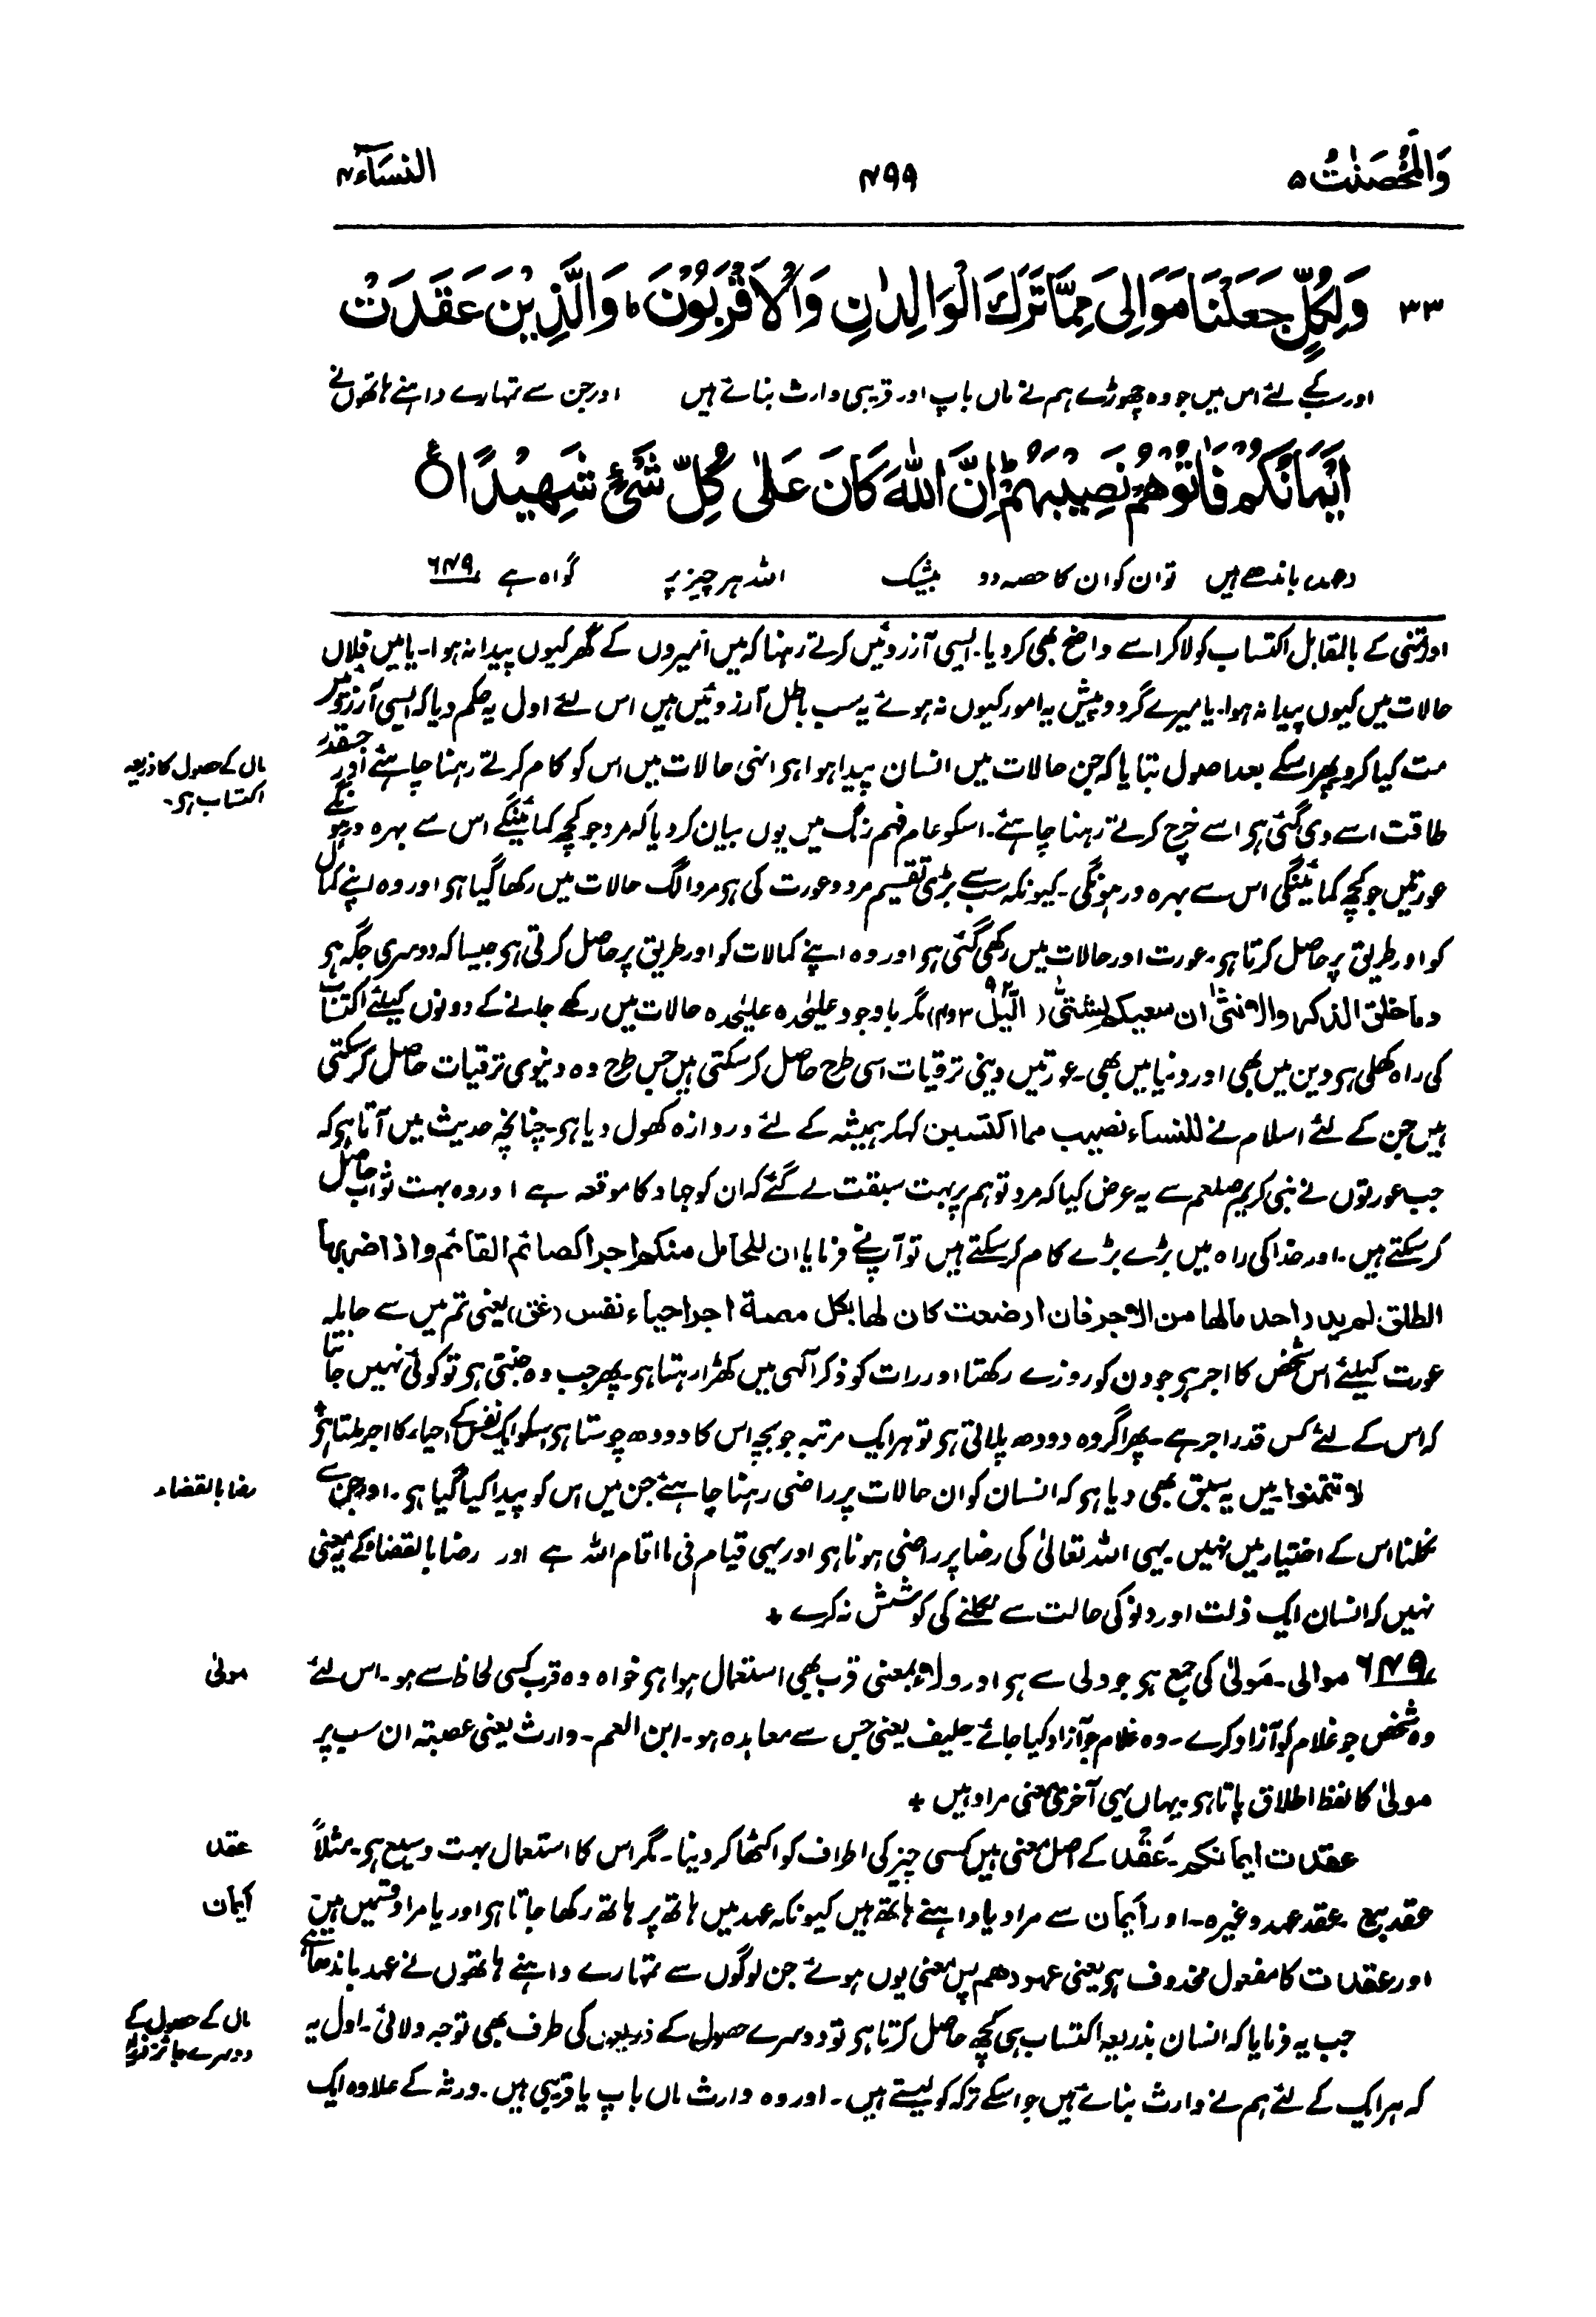 وَالْمُحْصَنٰتُ ۵
۴۹۹
النسَآء ۴
۳۳ وَلِكُلٍّ جَعَلْنَا مَوَالِیَ مِمَّا تَرَكَ الْوَالِدٰنِ وَالْاَقْرَبُوْنَ ؕ وَالَّذِيْنَ عَقَدَتْ
اور سب کے لئے اس میں جو وہ چھوڑے ہم نے ماں باپ اور قریبی وارث بنائے ہیں اور جن سے تمہارے داہنے ہاتھوں نے
اَيْمَانُكُمْ فَاٰتُوْهُمْ نَصِيْبَهُمْ ؕ اِنَّ اللّٰهَ كَانَ عَلٰى كُلِّ شَیْءٍ شَهِيْدًا ۟ع
عہد باندھے ہیں تو ان کو ان کا حصہ دو بیشک اللہ ہر چیز پر گواہ ہے ۶۴۹
اور تمنی کے بالمقابل اکتساب کو لاکر اسے واضح بھی کر دیا۔ ایسی آرزوئیں کرتے رہنا کہ میں امیروں کے گھر کیوں پیدا نہ ہوا۔ یا میں فلاں
حالات میں کیوں پیدا نہ ہوا۔ یا میرے گرد و پیش یہ امور کیوں نہ ہوئے یہ سب باطل آرزوئیں ہیں اس لئے اول یہ حکم دیا کہ ایسی آرزوئیں
مت کیا کرو پھر اسکے بعد اصول بتایا کہ جن حالات میں انسان پیدا ہوا ہو انہی حالات میں اس کو کام کرتے رہنا چاہئے اور جسقدر
مال کے حصول کا ذریعہ
اکتساب ہی۔
طاقت اسے دی گئی ہو اسے خرچ کرتے رہنا چاہئے۔ اسکو عام فہم رنگ میں یوں بیان کر دیا کہ مرد جو کچھ کمائینگے اس سے بہرہ ور ہونگے
عورتیں جو کچھ کمائینگی اس سے بہرہ ور ہونگی۔ کیونکہ سب سے بڑی تقسیم مرد و عورت کی ہو مرد الگ حالات میں رکھا گیا ہو اور وہ اپنے کمال
کو اور طریق پر حاصل کرتا ہو۔ عورت اور حالات میں رکھی گئی ہو اور وہ اپنے کمالات کو اور طریق پر حاصل کرتی ہو جیسا کہ دوسری جگہ ہو
وما خلق الذکر والانثیٰ ان سعیکم لشتیٰ (الّیل ۹۲ ۳ و ۴) مگر باوجود علیٰحدہ علیٰحدہ حالات میں رکھے جانے کے دونوں کیلئے اکتساب
کی راہ کھلی ہو دین میں بھی اور دنیا میں بھی۔ عورتیں دینی ترقیات اسی طرح حاصل کر سکتی ہیں جس طرح وہ دنیوی ترقیات حاصل کر سکتی
ہیں جن کے لئے اسلام نے للنساء نصیب مما اکتسبن کہکر ہمیشہ کے لئے دروازہ کھول دیا ہو۔ چنانچہ حدیث میں آتا ہو کہ
جب عورتوں نے نبی کریم صلعم سے یہ عرض کیا کہ مرد تو ہم پر بہت سبقت لے گئے کہ ان کو جہاد کا موقعہ ہے اور وہ بہت ثواب حاصل
کر سکتے ہیں۔ اور خدا کی راہ میں بڑے بڑے کام کر سکتے ہیں تو آپ نے فرمایا ان للحامل منکن اجر الصائم القائم واذا ضربها
الطلق لم یدر احد ما لها من الاجر فان ارضعت کان لها بکل مصة اجر احیاء نفس (غق) یعنی تم میں سے حاملہ
عورت کیلئے اس شخص کا اجر ہو جو دن کو روزے رکھتا اور رات کو ذکر الٰہی میں کھڑا رہتا ہو۔ پھر جب وہ جنتی ہو تو کوئی نہیں جانتا
کہ اس کے لئے کس قدر اجر ہے۔ پھر اگر وہ دودھ پلاتی ہو تو ہر ایک مرتبہ جو بچہ اس کا دودھ چوستا ہو اسکو ایک نفس کے احیاء کا اجر ملتا ہو +
لا تتمنوا۔ میں یہ سبق بھی دیا ہو کہ انسان کو ان حالات پر راضی رہنا چاہئے جن میں اس کو پیدا کیا گیا ہو۔ اور جن سے
رضا بالقضاء
نکلنا اس کے اختیار میں نہیں۔ یہی اللہ تعالیٰ کی رضا پر راضی ہونا ہو اور یہی قیام فی ما اقام اللہ ہے اور رضا بالقضاء کے یہ معنی
نہیں کہ انسان ایک ذلت اور دنو کی حالت سے نکلنے کی کوشش نہ کرے +
۶۴۹ موالی۔ مَولیٰ کی جمع ہو جو ولی سے ہو اور ولاء بمعنی قرب بھی استعمال ہوا ہو خواہ وہ قرب کسی لحاظ سے ہو۔ اس لئے
مولیٰ
وہ شخص جو غلام کو آزاد کرے۔ وہ غلام جو آزاد کیا جائے۔ حلیف یعنی جس سے معاہدہ ہو۔ ابن العم۔ وارث یعنی عصبتہ ان سب پر
مولیٰ کا لفظ اطلاق پاتا ہو۔ یہاں یہی آخری معنی مراد ہیں +
عقدت ایمانکم۔ عَقْد کے اصل معنی ہیں کسی چیز کی اطراف کو اکٹھا کر دینا۔ مگر اس کا استعمال بہت وسیع ہو۔ مثلاً
عقد
عقد بیع۔ عقد عہد وغیرہ۔ اور أیمان سے مراد یا داہنے ہاتھ ہیں کیونکہ عہد میں ہاتھ پر ہاتھ رکھا جاتا ہو اور یا مراد قسمیں ہیں
أیمان
اور عقدت کا مفعول محذوف ہو یعنی عہودھم پس معنی یوں ہوئے جن لوگوں سے تمہارے داہنے ہاتھوں نے عہد باندھا ہے
جب یہ فرمایا کہ انسان بذریعہ اکتساب ہی کچھ حاصل کرتا ہو تو دوسرے حصول کے ذریعوں کی طرف بھی توجہ دلائی۔ اول یہ
مال کے حصول کے
دوسرے جائز
کہ ہر ایک کے لئے ہم نے وارث بنائے ہیں جو اسکے ترکہ کو لیتے ہیں۔ اور وہ وارث ماں باپ یا قریبی ہیں۔ ورثہ کے علاوہ ایک